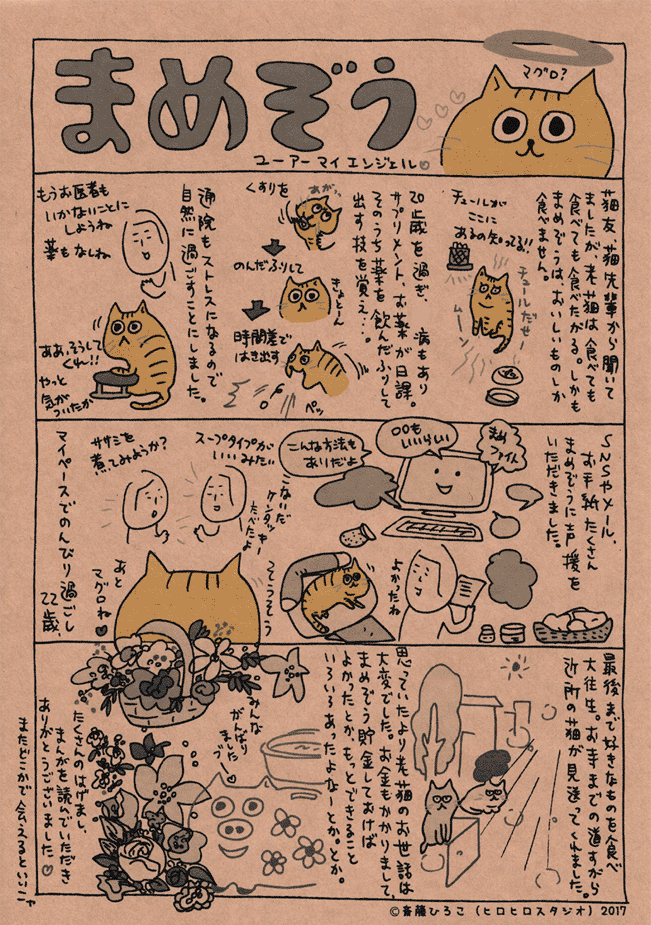 まめぞう
ユーアー マイ エンジェル
マグロ?
猫友、猫先輩から聞いて
ましたが、老猫は食べても
食べても食べたがる。しかも
まめぞうは、おいしいものしか
食べません。
チュールが
ここに
あるの知ってる!!
チュールだせー
ムーン
20歳を過ぎ、病もあり
サプリメント、お薬が日課。
そのうち薬を飲んだふりして
出す技を覚え…。
くすりを
あがっ
のんだふりして
きょとーん
時間差で
はき出す
ペッ
通院もストレスになるので
自然に過ごすことにしました。
もうお医者も
いかないことに
しようね
薬もなしね
ああ、そうして
くれ!!
やっと
気が
ついたか
SNSやメール、
お手紙 たくさん
まめぞうに声援を
いただきました。
ファイト
〇〇も
いいらしい
こんな方法も
ありだよ
よかったね
スープタイプが
いいみたい
ササミを
煮てみようか?
こないだ
ケンタッキー
たべたよ
そうそう
あと
マグロね
マイペースでのんびり過ごし
22歳、
最後まで好きなものを食べ
大往生。お寺までの道すがら
近所の猫が見送ってくれました。
思っていたより老猫のお世話は
大変でした。お金もかかりまして、
まめぞう貯金しておけば
よかったとか、もっとできること
いろいろあったよなーとか。とか。
みんな
がんばり
ました
たくさんのはげまし、
まんがを読んでいただき
ありがとうございました
またどこかで会えるといいにゃ
©斎藤ひろこ(ヒロヒロスタジオ)2017